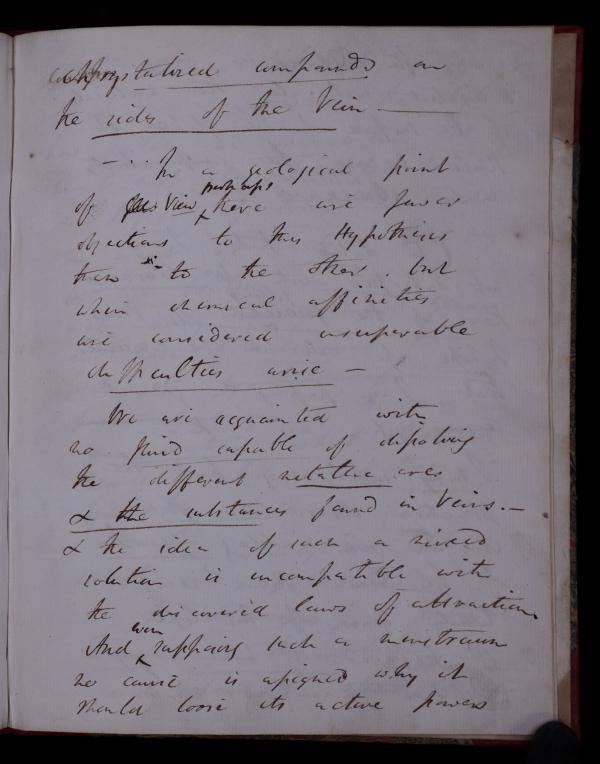 chrystalized compounds on
the sides of the Vein. —
— .. In a geological point
of view perhaps there are fewer
objections to this Hypothesis
than to the other. but
when chemical affinities
are considered insuperable
difficulties arise —
We are acquainted with
no fluid capable of dissolving
the different metallic ores
& the substances found in Veins. —
& the idea of such a mixed
solution is incompatible with
the discovered laws of attraction.
And even supposing such a menstruum
no cause is assigned why it
should loose its active powers